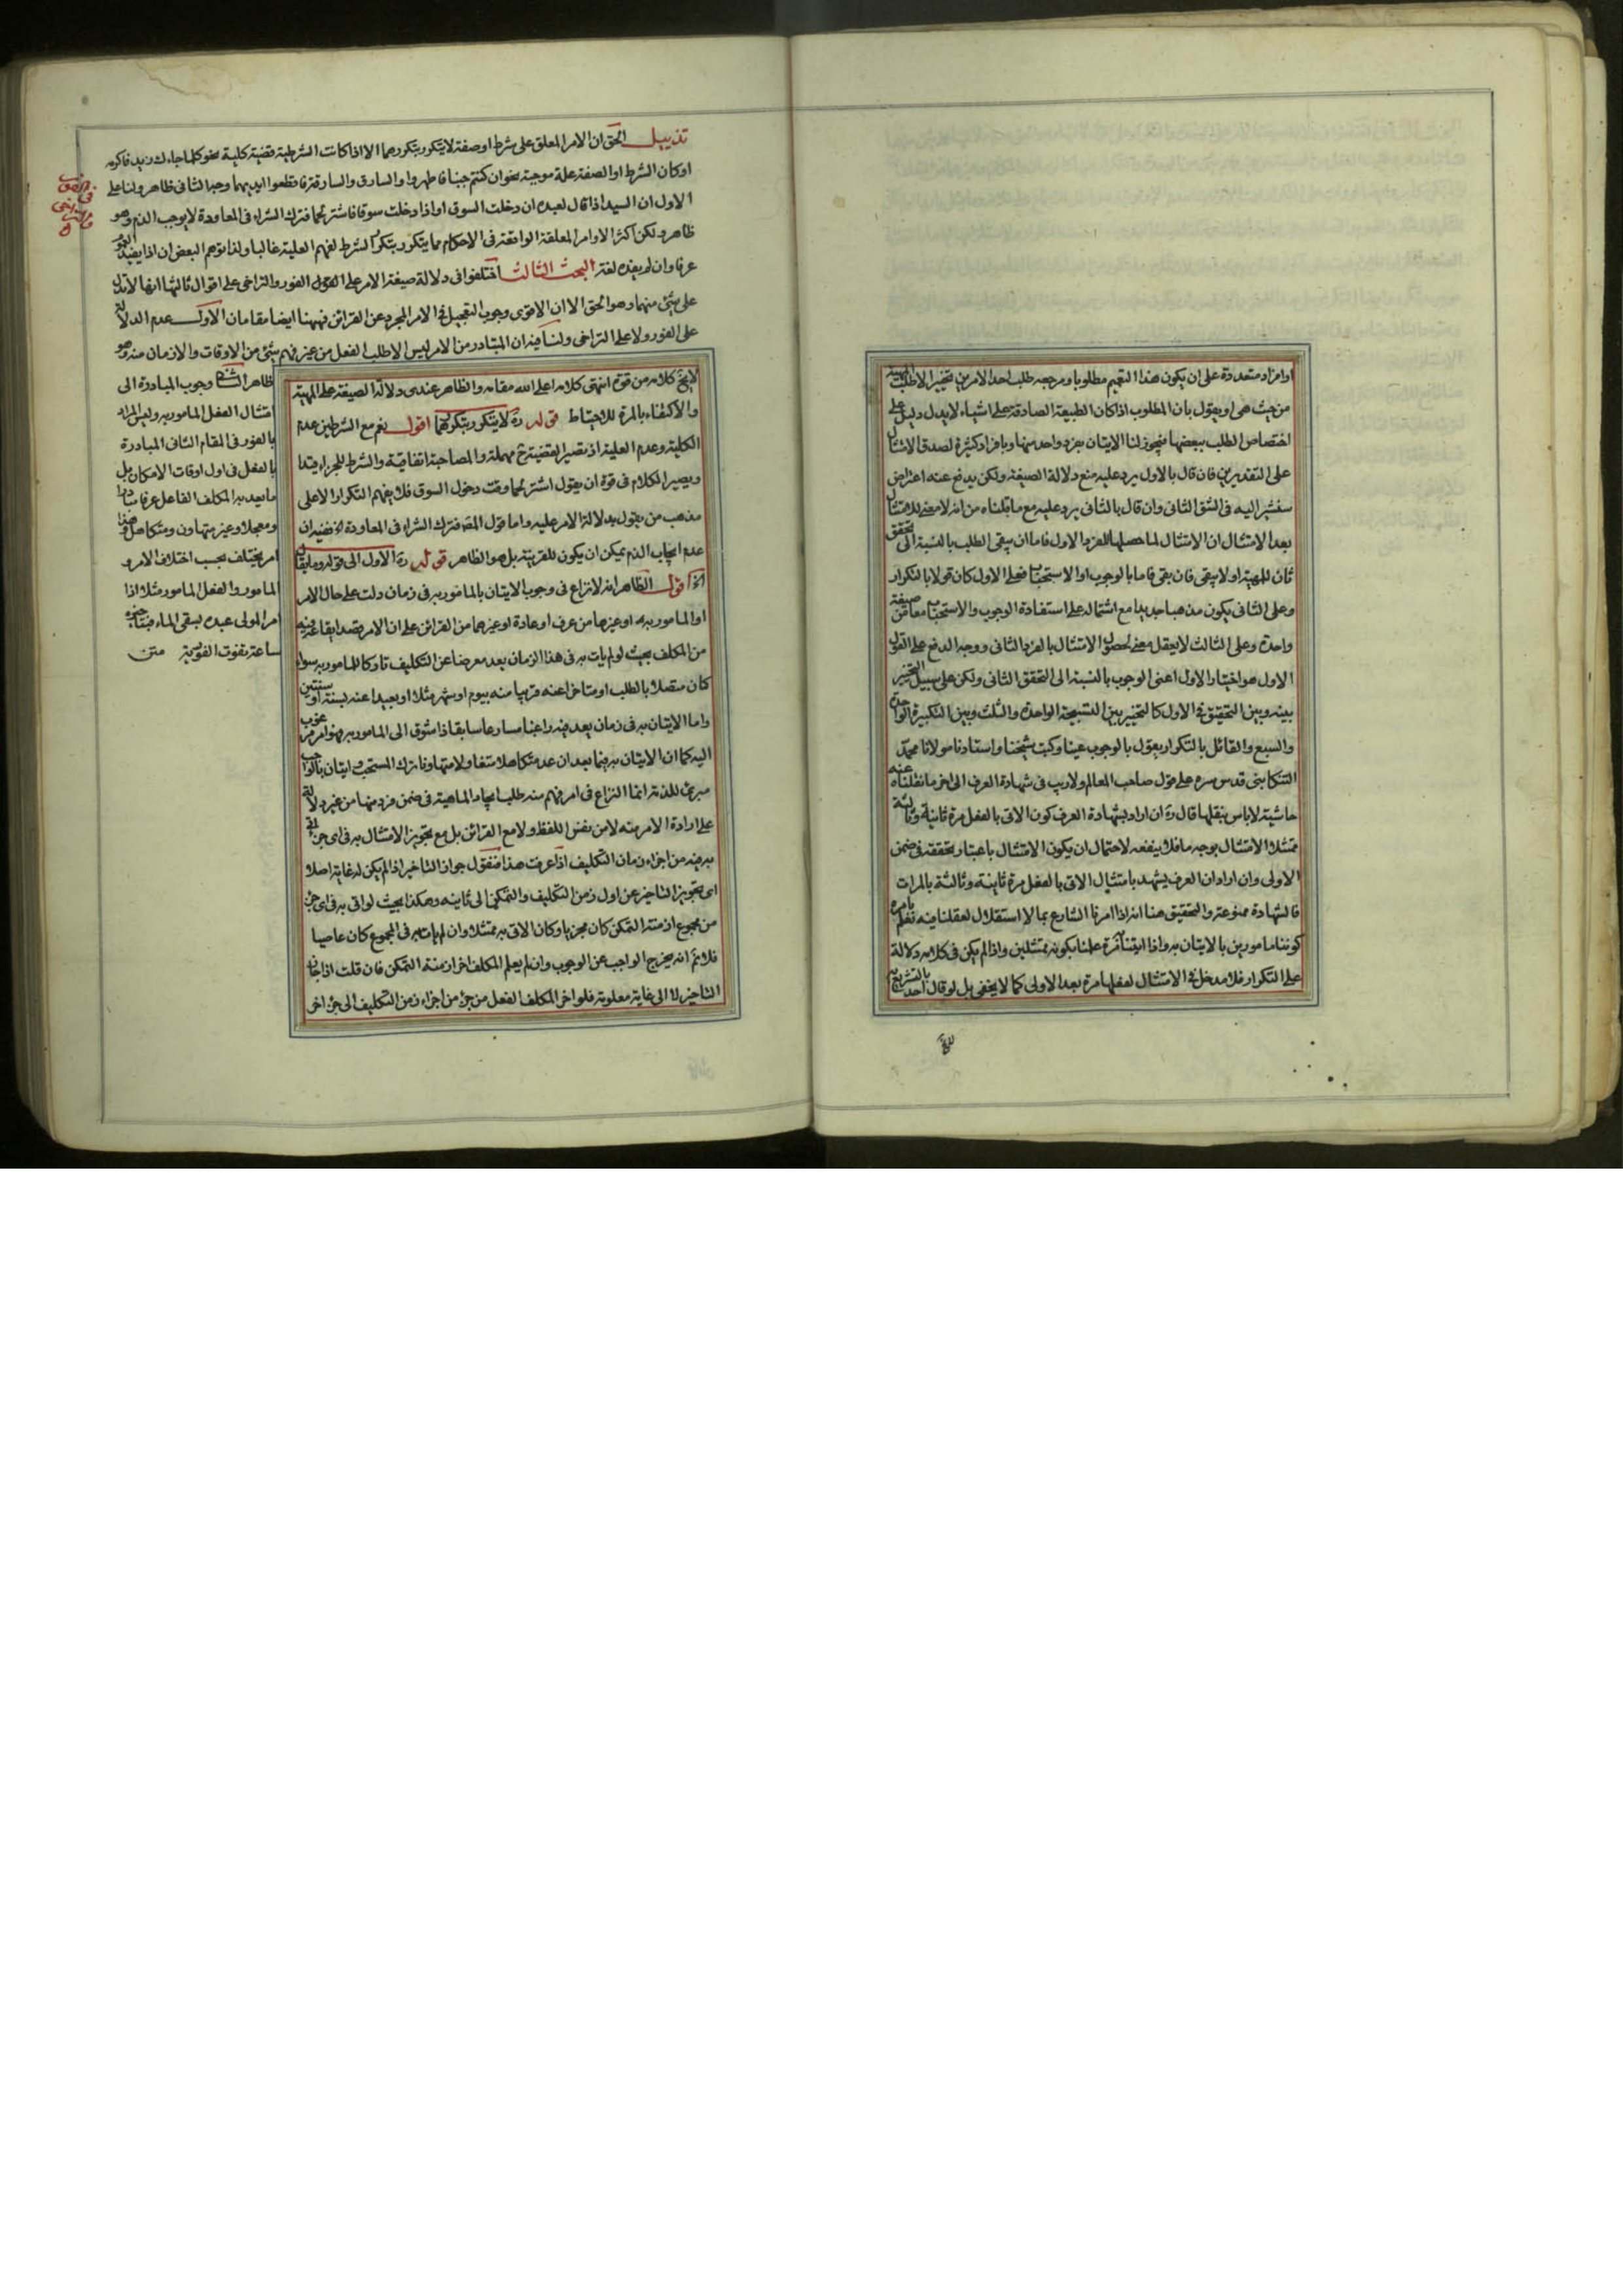 او افراد متعددة على ان يكون هذا التعميم مطلوبا ومرجعه طلب احد الامرين تخيير الاطلب المهية
من حيث هى او يقول بان المطلوب اذا كان الطبيعة الصادقة على اشياء لا يدل دليل على
اختصاص الطلب ببعضها فيجوز لنا الاتيان بفرد واحد منها وبافراد كثيرة لصدق الامتثال
على التقديرين فان قال بالاول يرد عليه منع دلالة الصيغة ولكن يدفع عنه اعتراض
سنشير اليه فى الشق الثانى وان قال بالثانى يرد عليه مع ما قلناه من انه لا معنى للامتثال
بعد الامتثال ان الامتثال لما حصل بالفرد الاول فاما ان يبقى الطلب بالنسبة الى تحقق
ثان للمهية او لا يبقى فان بقى فاما بالوجوب او الاستحباب فعلى الاول كان قولا بالتكرار
وعلى الثانى يكون مذهبا جديدا مع اشتماله على استفادة الوجوب والاستحباب معا من صيغة
واحدة وعلى الثالث لا يعقل معنى لحصول الامتثال بالفرد الثانى ووجه الدفع على القول
الاول هو اختيار الاول اعنى الوجوب بالنسبة الى التحقق الثانى ولكن على سبيل التخيير
بينه وبين التحقيق فى الاول كالتخيير بين التسبيحة الواحدة والثلث وبين التكبيرة الواحدة
والسبع والقائل بالتكرار يقول بالوجوب عينا وكتب شيخنا واستادنا مولانا محمد
التنكابنى قدس سره على قول صاحب المعالم ولا ريب فى شهادة العرف الى اخر ما نقلناه عنه
حاشية لا باس بنقلها قال ره ان اراد بشهادة العرف كون الاتى بالفعل مرة ثانية وثالثة
ممتثلا الامتثال بوجه ما فلا ينفعه لاحتمال ان يكون الامتثال باعتبار تحققه فى ضمن
الاولى وان اراد ان العرف يشهد بامتثال الاتى بالفعل مرة ثانية وثالثة بالمرات
فالشهادة ممنوعة والتحقيق هنا انه اذا امرنا الشارع بما لا استقلال لعقلنا فيه نعلم بامره
كوننا مامورين بالاتيان به واذا اتيناه مرة علمنا بكوننا ممتثلين واذا لم يكن فى كلامه دلالة
على التكرار فلا مدخل فى الامتثال لفعلها مرة بعد الاولى كما لا يخفى بل لو قال احد بالتشريع
تذييل الحق ان الامر المعلق على شرط او صفة لا يتكرر بتكررهما الا اذا كانت الشرطية قضية كلية نحو كلما جاءك زيد فاكرمه
او كان الشرط او الصفة علة موجبة نحو ان كنتم جنبا فاطهروا والسارق والسارقة فاقطعوا ايديهما وجه الثانى ظاهر ولنا على
الاول ان السيد اذا قال لعبده ان دخلت السوق او اذا دخلت سوقا فاشتر لحما فترك الشراء فى المعاودة لا يوجب الذم وهو
ظاهر ولكن اكثر الاوامر المعلقة الواقعة فى الاحكام مما يتكرر بتكرر الشرط لفهم العلية غالبا ولذا توهم البعض ان اذا يفيد العموم
عرفا وان لم يفده لغة البحث الثالث اختلفوا فى دلالة صيغة الامر على الفور والتراخى على اقوال ثالثها انها لا تدل
على شئ منهما وهو الحق الا ان الاقوى وجوب التعجيل فى الامر المجرد عن القرائن فههنا ايضا مقامان الاول عدم الدلالة
على الفور ولا على التراخى ولنا فيه ان المتبادر من الامر ليس الا طلب الفعل من غير فهم شئ من الاوقات والازمان منه وهو
ظاهر الثانى وجوب المبادرة الى
امتثال الفعل المامور به وليس المراد
بالفور فى المقام الثانى المبادرة
بالفعل فى اول اوقات الامكان بل
ما يعد به المكلف الفاعل عرفا مبادرا
ومعجلا وغير متهاون ومتكاهل وهذا
امر يختلف بحسب اختلاف الامر و
المامور والفعل المامور مثلا اذا
امر المولى عبده بسقى الماء فبتاخيره
ساعة تفوت الفورية متن
لا يخ كلامه من قوة انتهى كلامه اعلى الله مقامه والظاهر عندى دلالة الصيغة على المهية
والاكتفاء بالمرة للاحتياط قوله ره لا يتكرر بتكررهما اقول نعم مع الشرطين عدم
الكلية وعدم العلية اذ تصير القضية ح مهملة والمصاحبة اتفاقية والشرط للجزاء قيدا
ويصير الكلام فى قوة ان يقول اشتر لحما وقت دخول السوق فلا يفهم التكرار الا على
مذهب من يقول بدلالة الامر عليه واما قول المص فترك الشراء فى المعاودة لخ ففيه ان
عدم ايجاب الذم يمكن ان يكون للقرينة بل هو الظاهر قوله ره الاول الى قوله وما يقال
الخ اقول الظاهر انه لا نزاع فى وجوب الاتيان بالمامور به فى زمان دلت على حال الامر
او المامور به او غيرها من عرف او عادة او غيرهما من القرائن على ان الامر قصد ايقاعه فيه
من المكلف بحيث لو لم يات به فى هذا الزمان يعد معرضا عن التكليف تاركا للمامور به سواء
كان متصلا بالطلب او متاخرا عنه قريبا منه بيوم او شهر مثلا او بعيدا عنه بسنة او سنتين
واما الاتيان به فى زمان يعد فيه راغبا مسارعا سابقا ذا شوق الى المامور به فهو امر مرغوب
اليه كما ان الاتيان به فيما بعد ان عد متكاهلا مستغا ولا متهاونا ترك المستحب واتيان بالواجب
مبرئ للذمة انما النزاع فى امر فهم منه طلب ايجاد الماهية فى ضمن فرد منها من غير دلالة
على ارادة الامر منه لا من نفس اللفظ ولا مع القرائن بل مع تجويز الامتثال به فى اى جزء اتى
به فيه من اجزاء زمان التكليف اذا عرفت هذا فنقول جواز التاخير اذا لم يكن له غاية اصلا
اى تجويز التاخير عن اول زمن التكليف والتمكن الى ثانيه وهكذا بحيث لو اتى به فى اى جزء
من مجموع ازمنة التمكن كان مجزيا وكان الاتى به ممتثلا وان لم يات به فى المجموع كان عاصيا
فلا ثم انه يخرج الواجب عن الوجوب وان لم يعلم المكلف اخر ازمنة التمكن فان قلت اذا جاز
التاخير لا الى غاية معلومة فلو اخر المكلف الفعل من جزء من اجزاء زمن التكليف الى جزء اخر